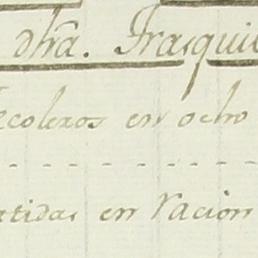 dha. Frasqui
ecoleros en ocho
rtidas en racion